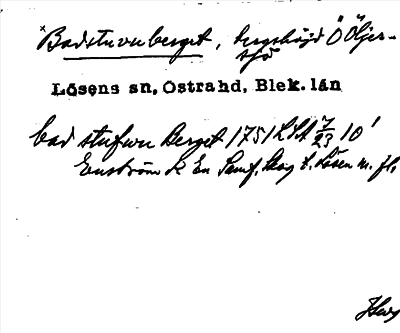 Badstuvuberget, bergshöjd Ö Öljer-
sjö
Lösens sn, Östrahd, Blek. län
bad stufwu Berget 1751 LSA 7/23 10'
Enström K En Saml. Skog t. Lösen m. fl.